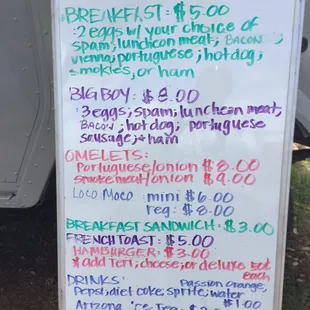 BREAKFAST: $5.00
2 eggs w/ your choice of
spam; luncheon meat; BACON;
vienna; portuguese; hotdog;
smokies, or ham
BIG BOY: $8.00
3 eggs; spam; luncheon meat;
BACON; hot dog; portuguese
sausage; & ham
OMELETS:
Portuguese/onion $8.00
smoke meat/onion $9.00
LOCO MOCO: mini $6.00
reg: $8.00
BREAKFAST SANDWICH: $3.00
FRENCH TOAST: $5.00
HAMBURGER: $3.00
*add Teri, cheese, or deluxe 50¢
each
DRINKS: Passion orange,
Pepsi, diet coke, sprite, water
$1.00
Arizona Ice Tea